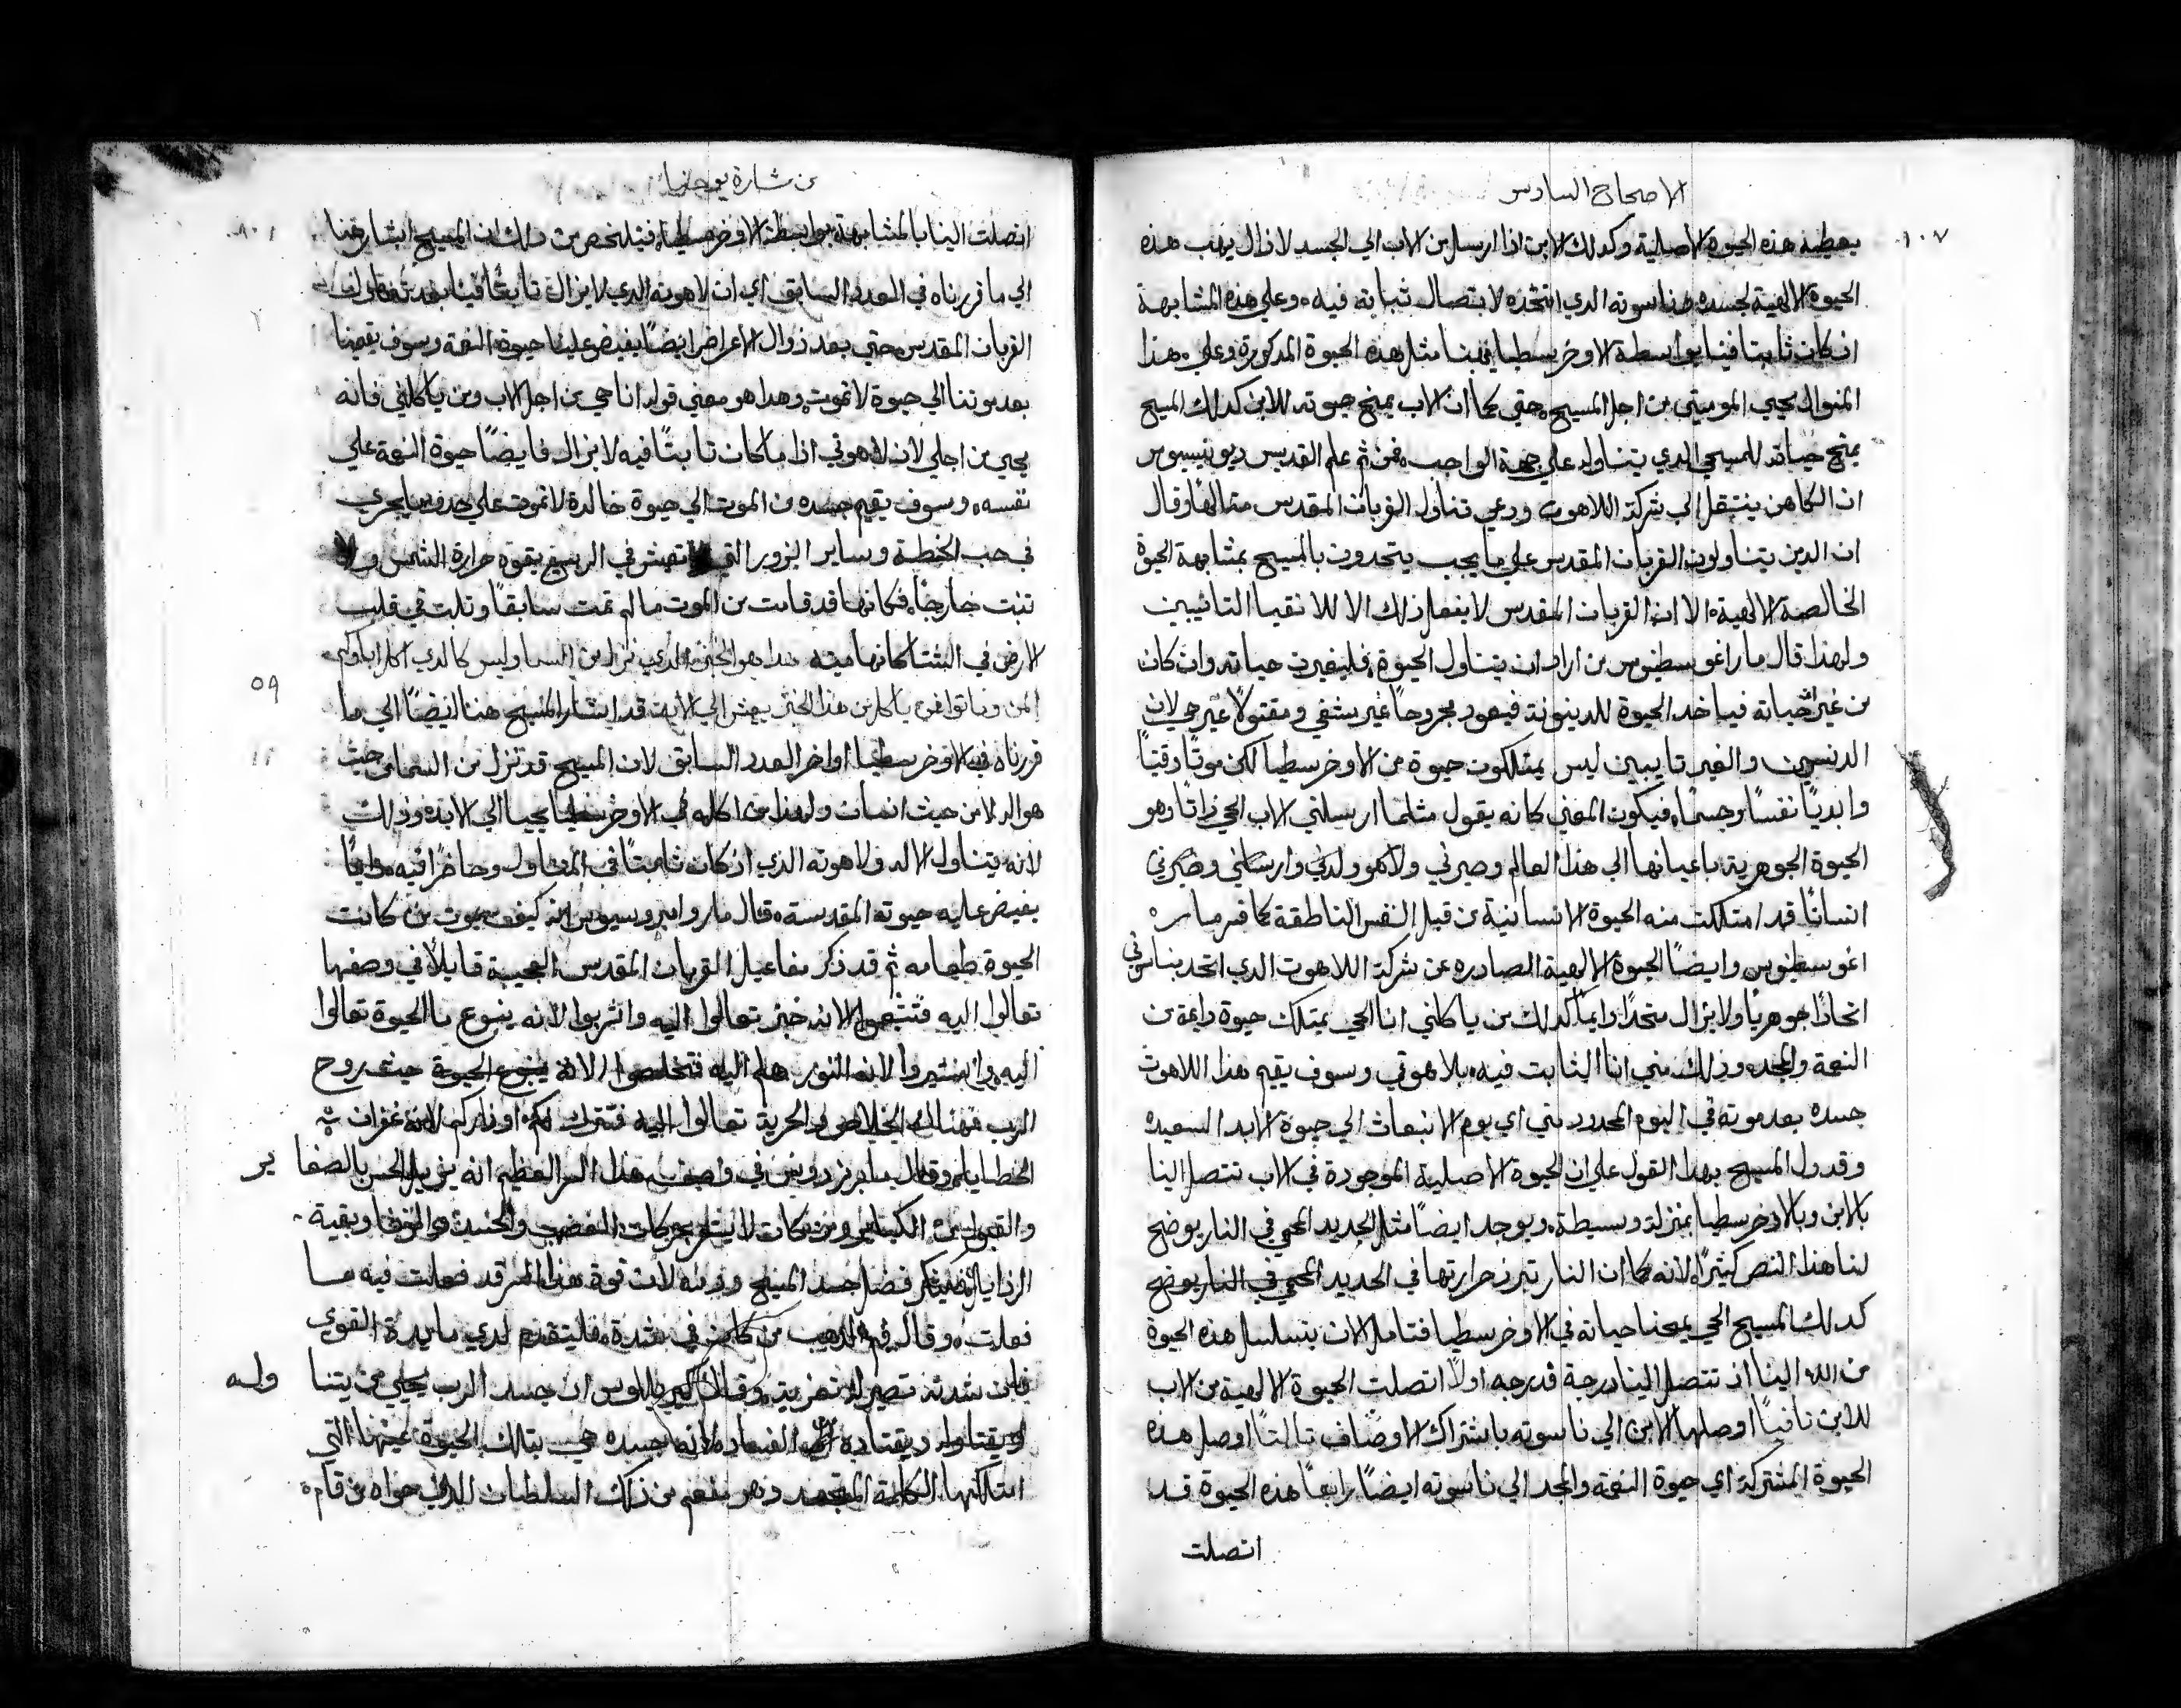 الاصحاح السادس
١٠٧
يعطيه هذه الحيوة الاصلية وكدلك الابن اذا ارسل من الاب الي الجسد لازال يهب هذه
الحيوة الالهية لجسده وناسوته الدي اتخده لاتصال ثباته فيه، وعلي هذه المشابهة
ان كان ثابتا فينا بواسطة الاوخرسطيا يهبنا مثل هذه الحيوة المدكورة وعلي هذا
المنوال يحيي المومنين من اجل المسيح، حتي كما ان الاب يمنح حيوته للابن كدلك المسيح
يمنح حياته للمسيحي الدي يتناوله علي جهة الواجب، فمن ثم علم القديس ديونيسيوس
ان الكاهن ينتقل الي شركة اللاهوت ودعي تناول القربان المقدس متالها وقال
ان الدين يتناولون القربان المقدس علي ما يجب يتحدون بالمسيح بمشابهة الحيوة
الخالصة الالهية، الا ان القربان المقدس لا يفعل ذلك الا للانقيا التائبيين
ولهذا قال مار اغوسطينوس من اراد ان يتناول الحيوة، فليغيرن حياته وان كان
من غير حياته فياخد الحيوة للدينونة فيعود مجروحاً غير مشفي ومقتولاً غير حي لان
الدنسين والغير تايبين ليس يمتلكون حيوة من الاوخرسطيا لكن موتاً وقتياً
وابدياً نفساً وجسماً، فيكون المعني كانه يقول مثلما ارسلني الاب الحي ذاتاً وهو
الحيوة الجوهرية باعيانها الي هذا العالم وصيرني ولدني وارسلني وصيرني
انساناً قد امتلكت منه الحيوة الانسانية من قبل النفس الناطقة كما فسر مار
اغوسطينوس وايضاً الحيوة الالهية الصادره عن شركة اللاهوت الدي اتحد بناسوتي
اتحاداً جوهرياً ولايزال متحداً دايماً كدلك من ياكلني انا الحي يمتلك حيوة دايمة من
النعمة والمجد، وذلك مني انا الثابت فيه بلاهوتي وسوف يقيم هذا اللاهوت
جسده بعد موته في اليوم المحدود مني اي يوم الانبعاث الي حيوة الابد السعيده
وقد دل المسيح بهذا القول علي ان الحيوة الاصلية الموجودة في الاب تتصل الينا
بالابن وبالاوخرسطيا بمنزلة وسيطة، ويوجد ايضاً مثل الحديد المحمي في النار يوضح
لنا هذا النص كثيراً لانه كما ان النار تبرز حرارتها في الحديد المحمي في النار يوضح
كدلك المسيح الحي يمنحنا حياته في الاوخرسطيا فتامل الان بتسلسل هذه الحيوة
من الله الينا اذ تتصل الينا درجة فدرجه اولاً اتصلت الحيوة الالهية من الاب
للابن ثانياً اوصلها الابن الي ناسوته باشتراك الاوصاف ثالثاً اوصل هذه
الحيوة المشتركة اي حيوة النعمة والمجد الي ناسوته ايضاً رابعاً هذه الحيوة قد
اتصلت
من بشارة يوحنا
اتصلت الينا بالمشابهة بواسطة الاوخرسطيا، فيتلخص من دلك ان المسيح اشار هنا
الي ما قررناه في العدد السابق اي ان لاهوته الدي لايزال ثابثاً فينا بعد تناولنا
القربان المقدس حتي بعد زوال الاعراض ايضاً يفيض علينا حيوة النعمة وسوف يقيمنا
بعد موتنا الي حيوة لاتموت، وهدا هو معني قوله انا حي من اجل الاب ومن ياكلني فانه
يحيي من اجلي لان لاهوتي اذا ما كان ثابتاً فيه لايزال فايضاً حيوة النعمة علي
نفسه، وسوف يقيم جسده من الموت الي حيوة خالدة لاتموت علي حدو ما يجري
في حب الحنطة وساير البزور التي تعيش في الربيع بقوة حرارة الشمس ولا
تنبت خارجاً، فكانها قد قامت من الموت ما لم تمت سابقاً وتلت في قلب
الارض في الشتا كانها ميته هدا هو الخبز الدي نزل من السما وليس كالدي اكل اباوكم
٥٩
المن وماتوا فمن ياكل من هذا الخبز يعش الي الابد، قد اشار المسيح هنا ايضاً الي ما
قررناه في الاوخرسطيا اواخر العدد السابق لان المسيح قد تنزل من السما من حيث
هو اله لا من حيث انسان ولهذا من اكله في الاوخرسطيا يحيا الي الابد، وذلك
لانه يتناول الاله ولاهوته الدي اذ كان ثابتاً في المتناول وحاضراً فيه دايماً
يفيض عليه حيوته المقدسة، قال مار امبروسيوس انه كيف يموت من كانت
الحيوة طعامه ثم قد ذكر مفاعيل القربان المقدس العجيبة قايلاً في وصفها
تعالوا اليه فتشبعوا لانه خبز تعالوا اليه واشربوا لانه ينبوع ماالحيوة تعالوا
اليه واستنيروا لانه النور هلم اليه فتخلصوا لانه ينبوع الحيوة حيث روح
الرب فهناك الخلاص والحرية تعالوا اليه فتترك لكم اوزاركم لانه غفران
الخطايا، وقال في وصف هذا السر العظيم انه يزيل الحزن بالصفا
ير
الرذايل فليفتكر فضل جسد المسيح ودمه لان قوة هذا السر قد فعلت فيه ما
فعلت، وقال فم الدهب من كان في شدة، فليتقدم لدي مايدة القوي
فان شدته تصير له تعزية، وقال كيرللوس ان جسد الرب يحيي من يتنا
وله
الي عدم الفساد لانه جسده هي بتلك الحيوة عينها التي
امتلكتها الكلمة المتجسد وهو مفعم من ذلك السلطان الدي حواه من قام